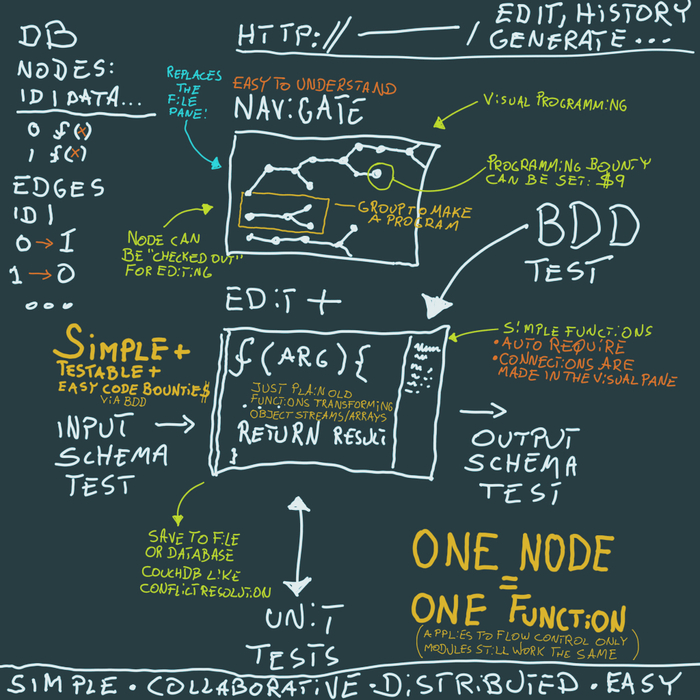 DB
NODES:
ID | DATA...
0 f(x)
1 f(x)
EDGES
ID |
0 → 1
1 → 0
...
HTTP:// ——— /
EDIT, HISTORY
GENERATE...
REPLACES
THE
FILE
PANE!
EASY TO UNDERSTAND
NAVIGATE
VISUAL PROGRAMMING
PROGRAMMING BOUNTY
CAN BE SET: $9
GROUP TO MAKE
A PROGRAM
NODE CAN
BE "CHECKED OUT"
FOR EDITING
BDD
TEST
EDIT +
SIMPLE +
TESTABLE +
EASY CODE BOUNTIE$
VIA BDD
f(ARG){
JUST PLAIN OLD
FUNCTIONS TRANSFORMING
OBJECT STREAMS/ARRAYS
RETURN RESULT
}
SIMPLE FUNCTIONS
• AUTO REQUIRE
• CONNECTIONS ARE
MADE IN THE VISUAL PANE
INPUT →
SCHEMA
TEST
→
OUTPUT
SCHEMA
TEST
SAVE TO FILE
OR DATABASE
COUCHDB LIKE
CONFLICT RESOLUTION
UNIT
TESTS
ONE NODE
=
ONE FUNCTION
(APPLIES TO FLOW CONTROL ONLY
MODULES STILL WORK THE SAME)
SIMPLE • COLLABORATIVE • DISTRIBUTED • EASY